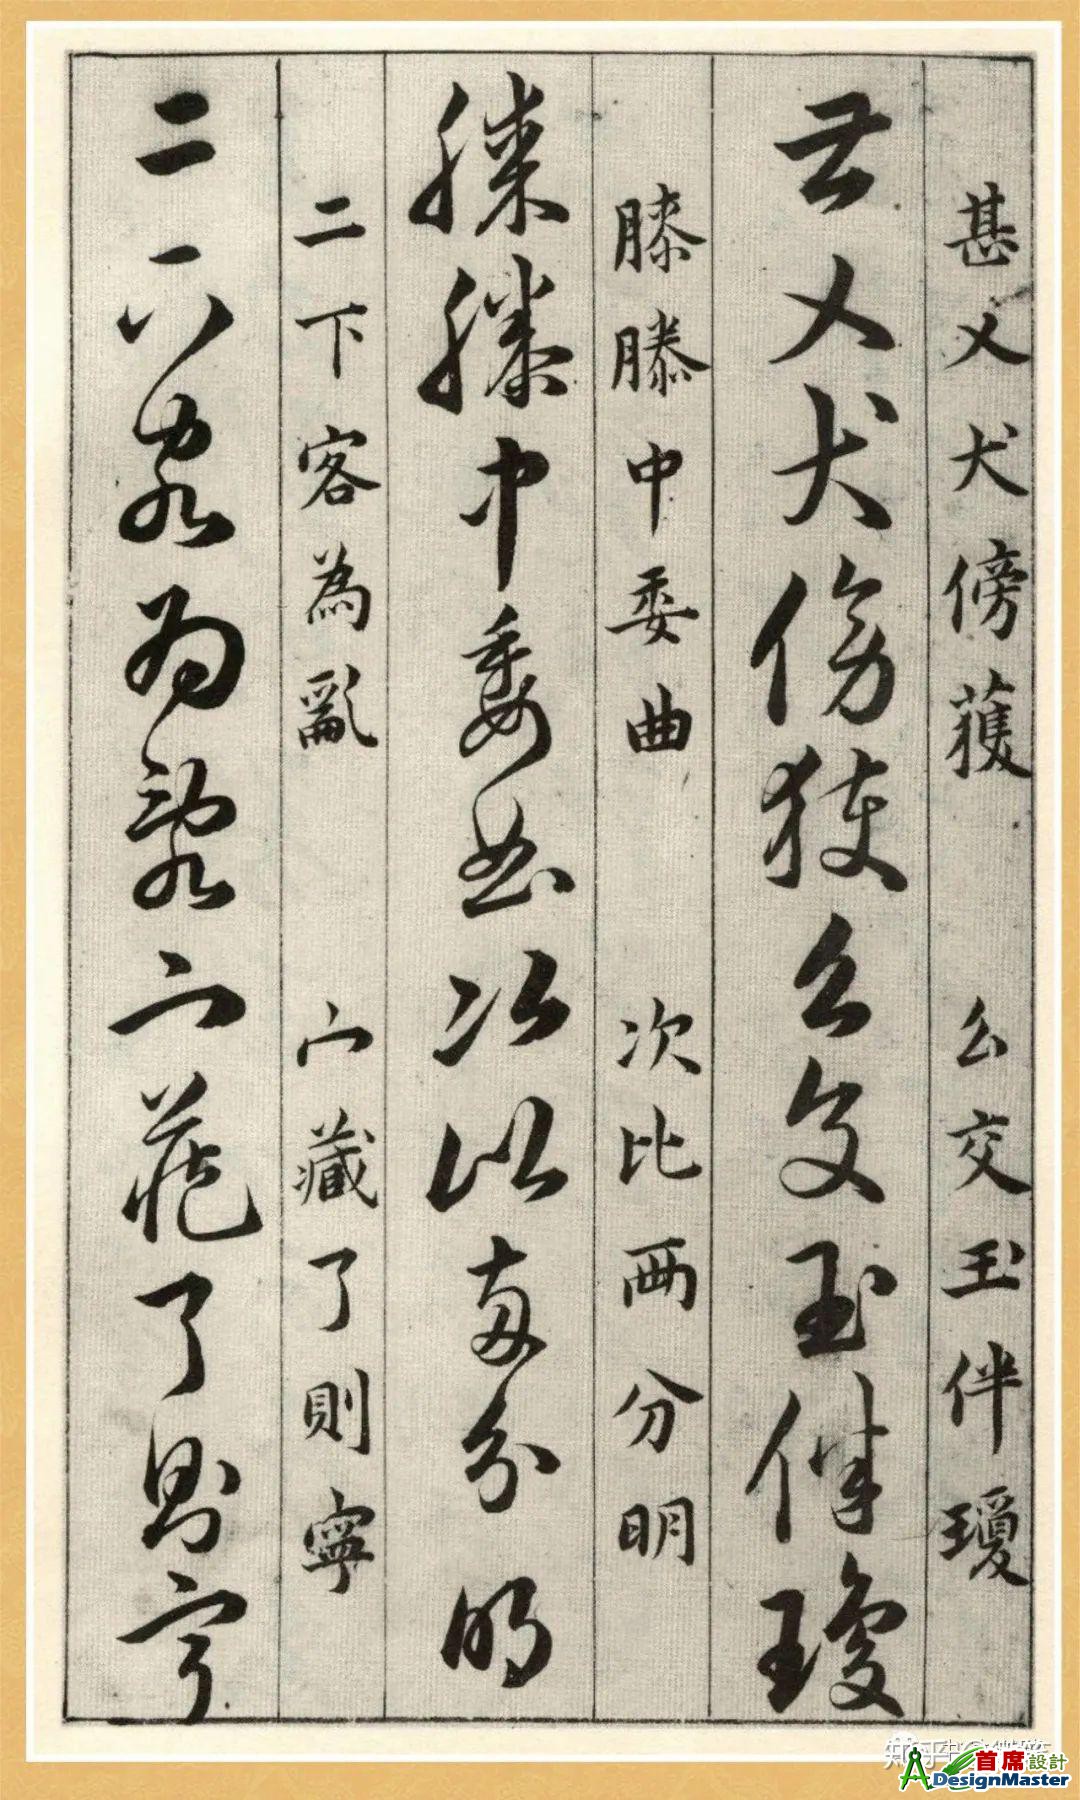 甚乂犬傍獲 幺交玉伴瓊
甚乂犬傍獲幺交玉伴瓊
膝滕中委曲 次比兩分明
膝滕中委曲次比兩分明
二下客為亂 宀藏了則寧
二下客為亂宀藏了則寧
知乎
首席設計
DesignMaster